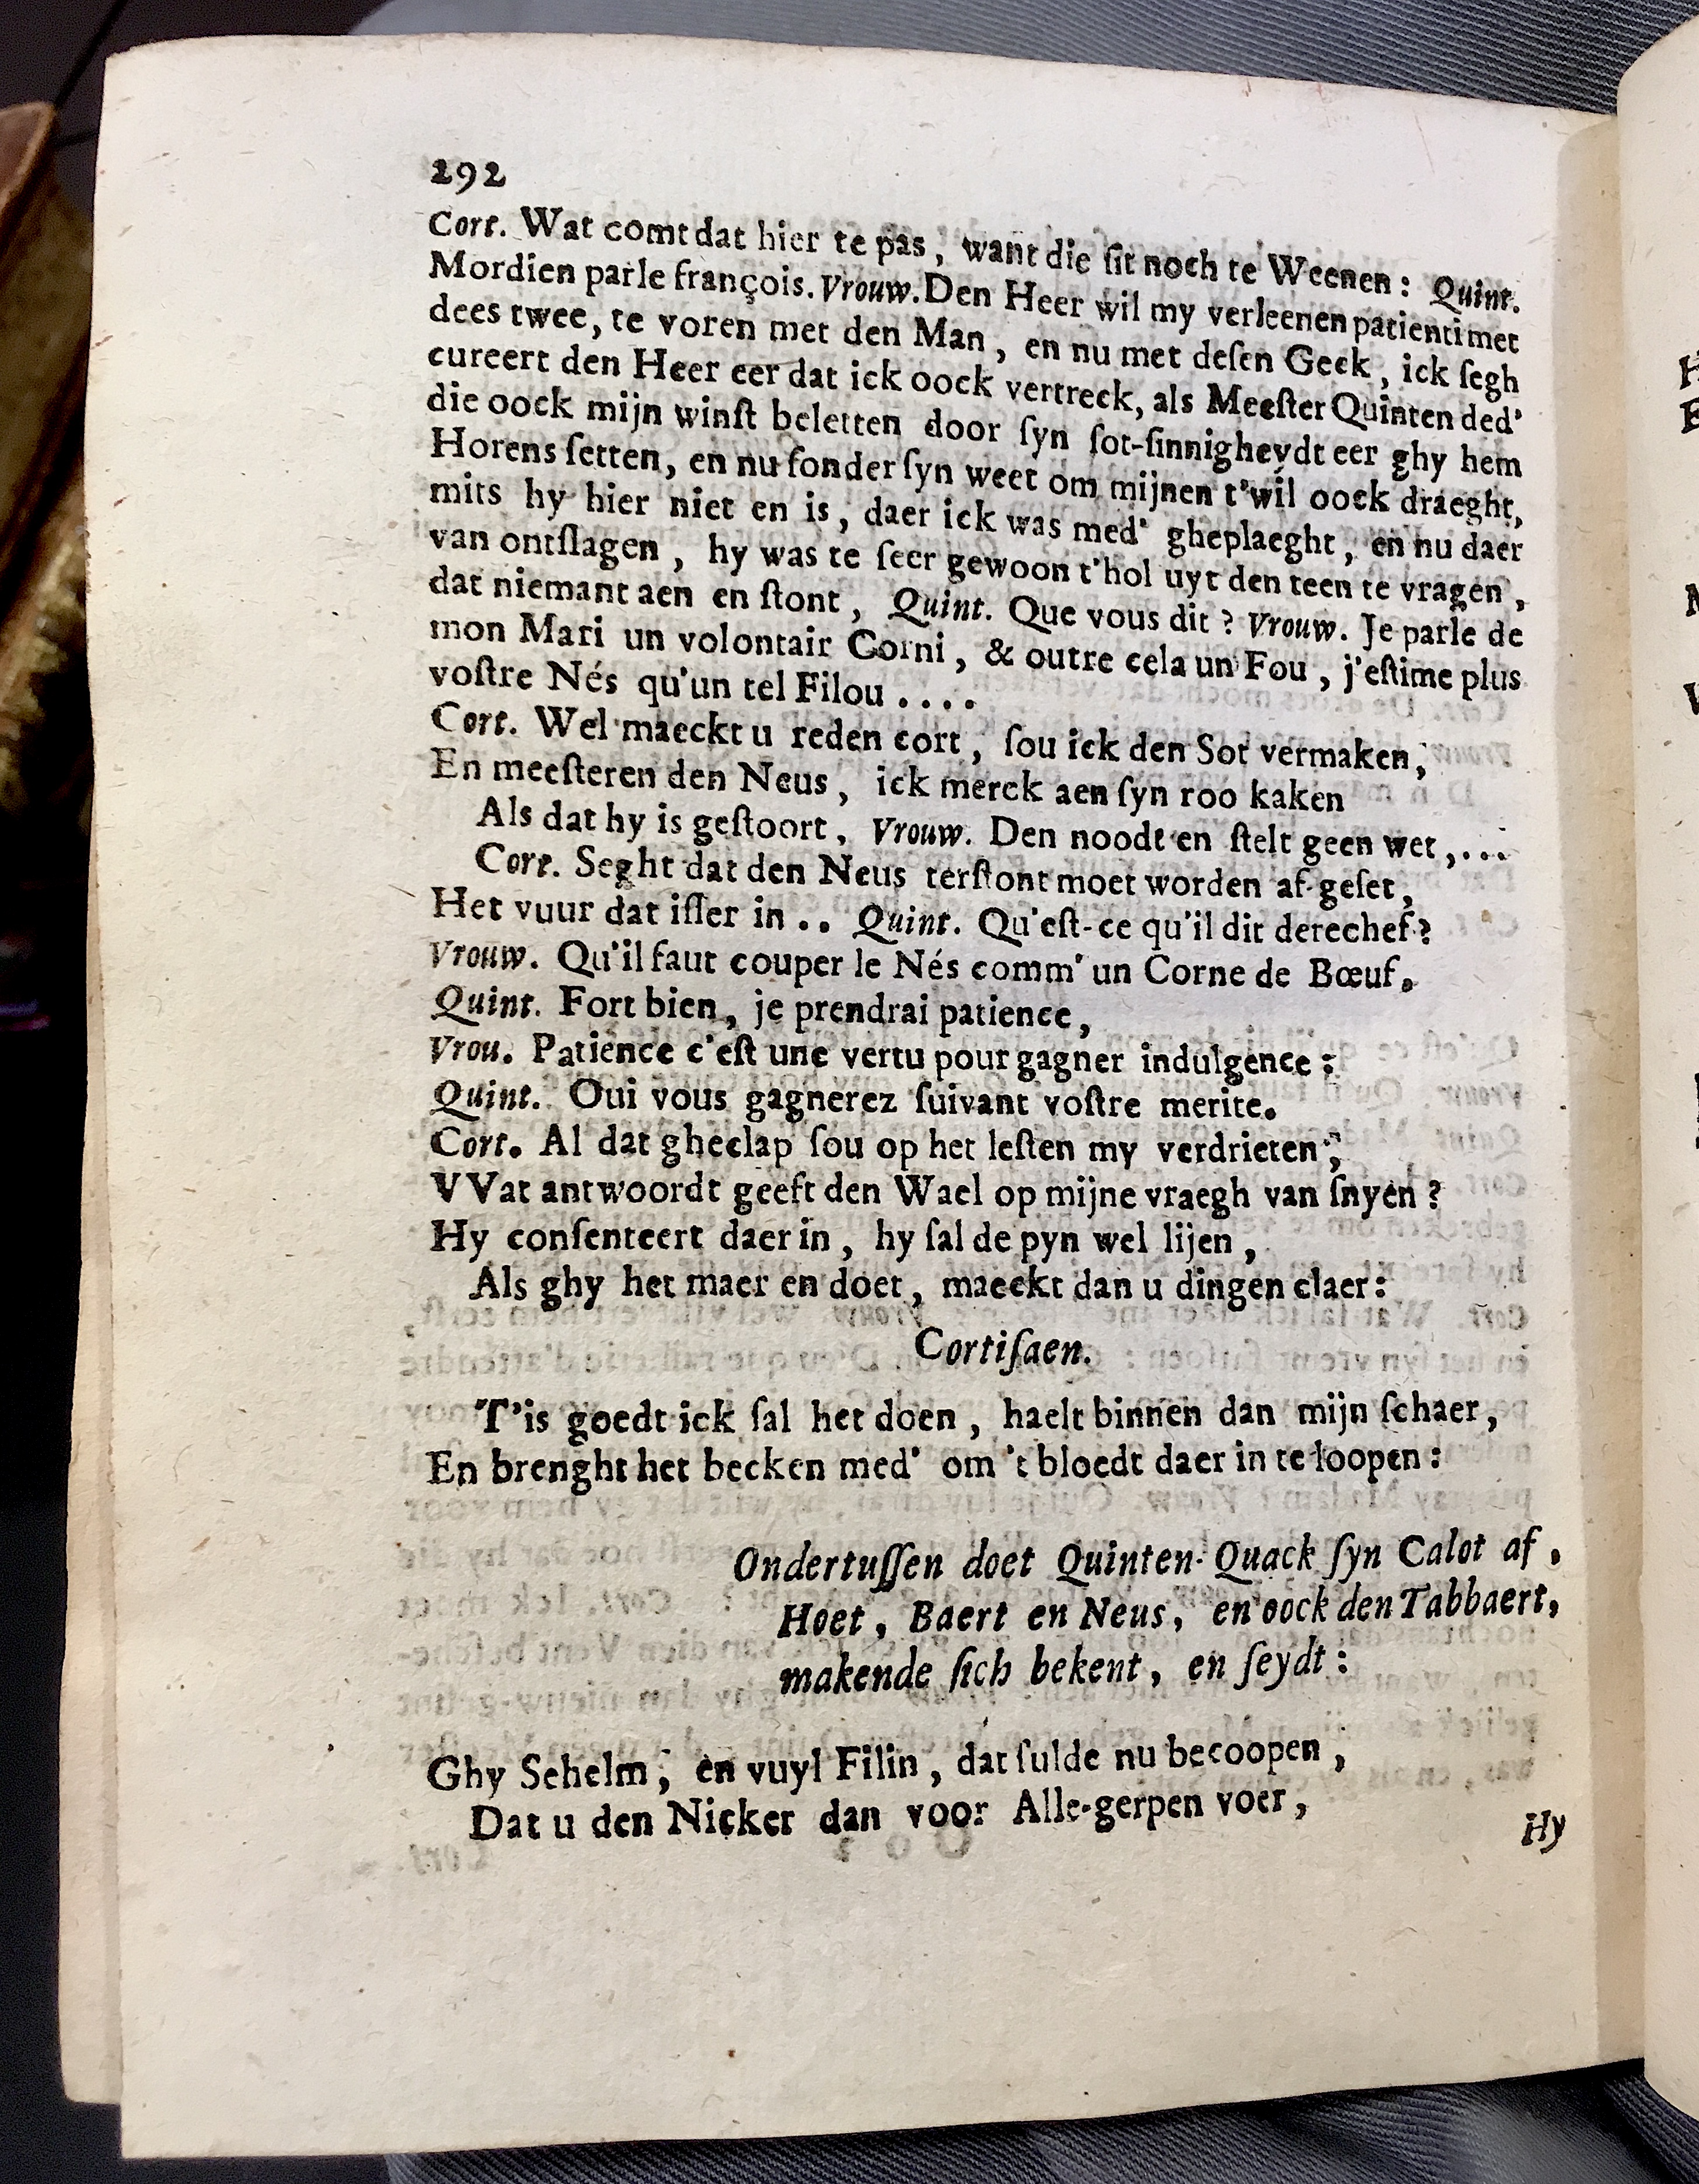 292
Cort. Wat comt dat hier te pas, want die ſit noch te Weenen: Quint.
Mordien parle françois. Vrouw. Den Heer wil my verleenen patienti met
dees twee, te voren met den Man, en nu met deſen Geck, ick ſegh
cureert den Heer eer dat ick oock vertreck, als Meeſter Quinten ded'
die oock mijn winſt beletten door ſyn ſot-ſinnigheydt eer ghy hem
Horens ſetten, en nu ſonder ſyn weet om mijnen t'wil oock draeght,
mits hy hier niet en is, daer ick was med' gheplaeght, en nu daer
van ontſlagen, hy was te ſeer gewoon t'hol uyt den teen te vragen,
dat niemant aen en ſtont, Quint. Que vous dit? Vrouw. Je parle de
mon Mari un volontair Corni, & outre cela un Fou, j'eſtime plus
voſtre Nés qu'un tel Filou....
Cort. Wel maeckt u reden cort, ſou ick den Sot vermaken,
En meeſteren den Neus, ick merck aen ſyn roo kaken
Als dat hy is geſtoort, Vrouw. Den noodt en ſtelt geen wet,...
Cort. Seght dat den Neus terſtont moet worden af-geſet,
Het vuur dat iſſer in.. Quint. Qu'eſt-ce qu'il dit derechef?
Vrouw. Qu'il faut couper le Nés comm' un Corne de Bœuf.
Quint. Fort bien, je prendrai patience,
Vrou. Patience c'eſt une vertu pour gagner indulgence:
Quint. Oui vous gagnerez ſuivant voſtre merite.
Cort. Al dat gheclap ſou op het leſten my verdrieten,
VVat antwoordt geeft den Wael op mijne vraegh van ſnyen?
Hy conſenteert daer in, hy ſal de pyn wel lijen,
Als ghy het maer en doet, maeckt dan u dingen claer:
Cortiſaen.
T'is goedt ick ſal het doen, haelt binnen dan mijn ſchaer,
En brenght het becken med' om 't bloedt daer in te loopen:
Ondertuſſen doet Quinten-Quack ſyn Calot af,
Hoet, Baert en Neus, en oock den Tabbaert,
makende ſich bekent, en ſeydt:
Ghy Schelm, en vuyl Filin, dat ſulde nu becoopen,
Dat u den Nicker dan voor Alle-gerpen voer,
Hy